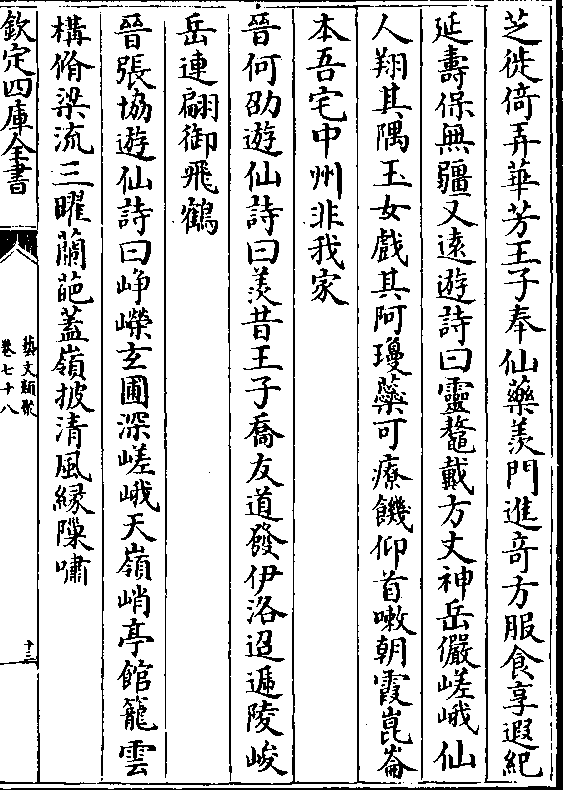 芝徙倚弄華芳王子奉仙藥羨門進竒方服食享遐紀
延壽保無疆又遠遊詩曰靈鼇戴方丈神岳儼嵯峨仙
人翔其隅玉女戲其阿瓊蘂可療饑仰首嗽朝霞崑崙
本吾宅中州非我家
晉何劭遊仙詩曰羨昔王子喬友道發伊洛迢遞陵峻
岳連翩御飛鶴
晉張協遊仙詩曰崢嶸玄圃深嵯峨天嶺峭亭館籠雲
構脩梁流三曜蘭葩蓋嶺披清風緑隟嘯
欽定四庫全書
藝文類聚
卷七十八
十三